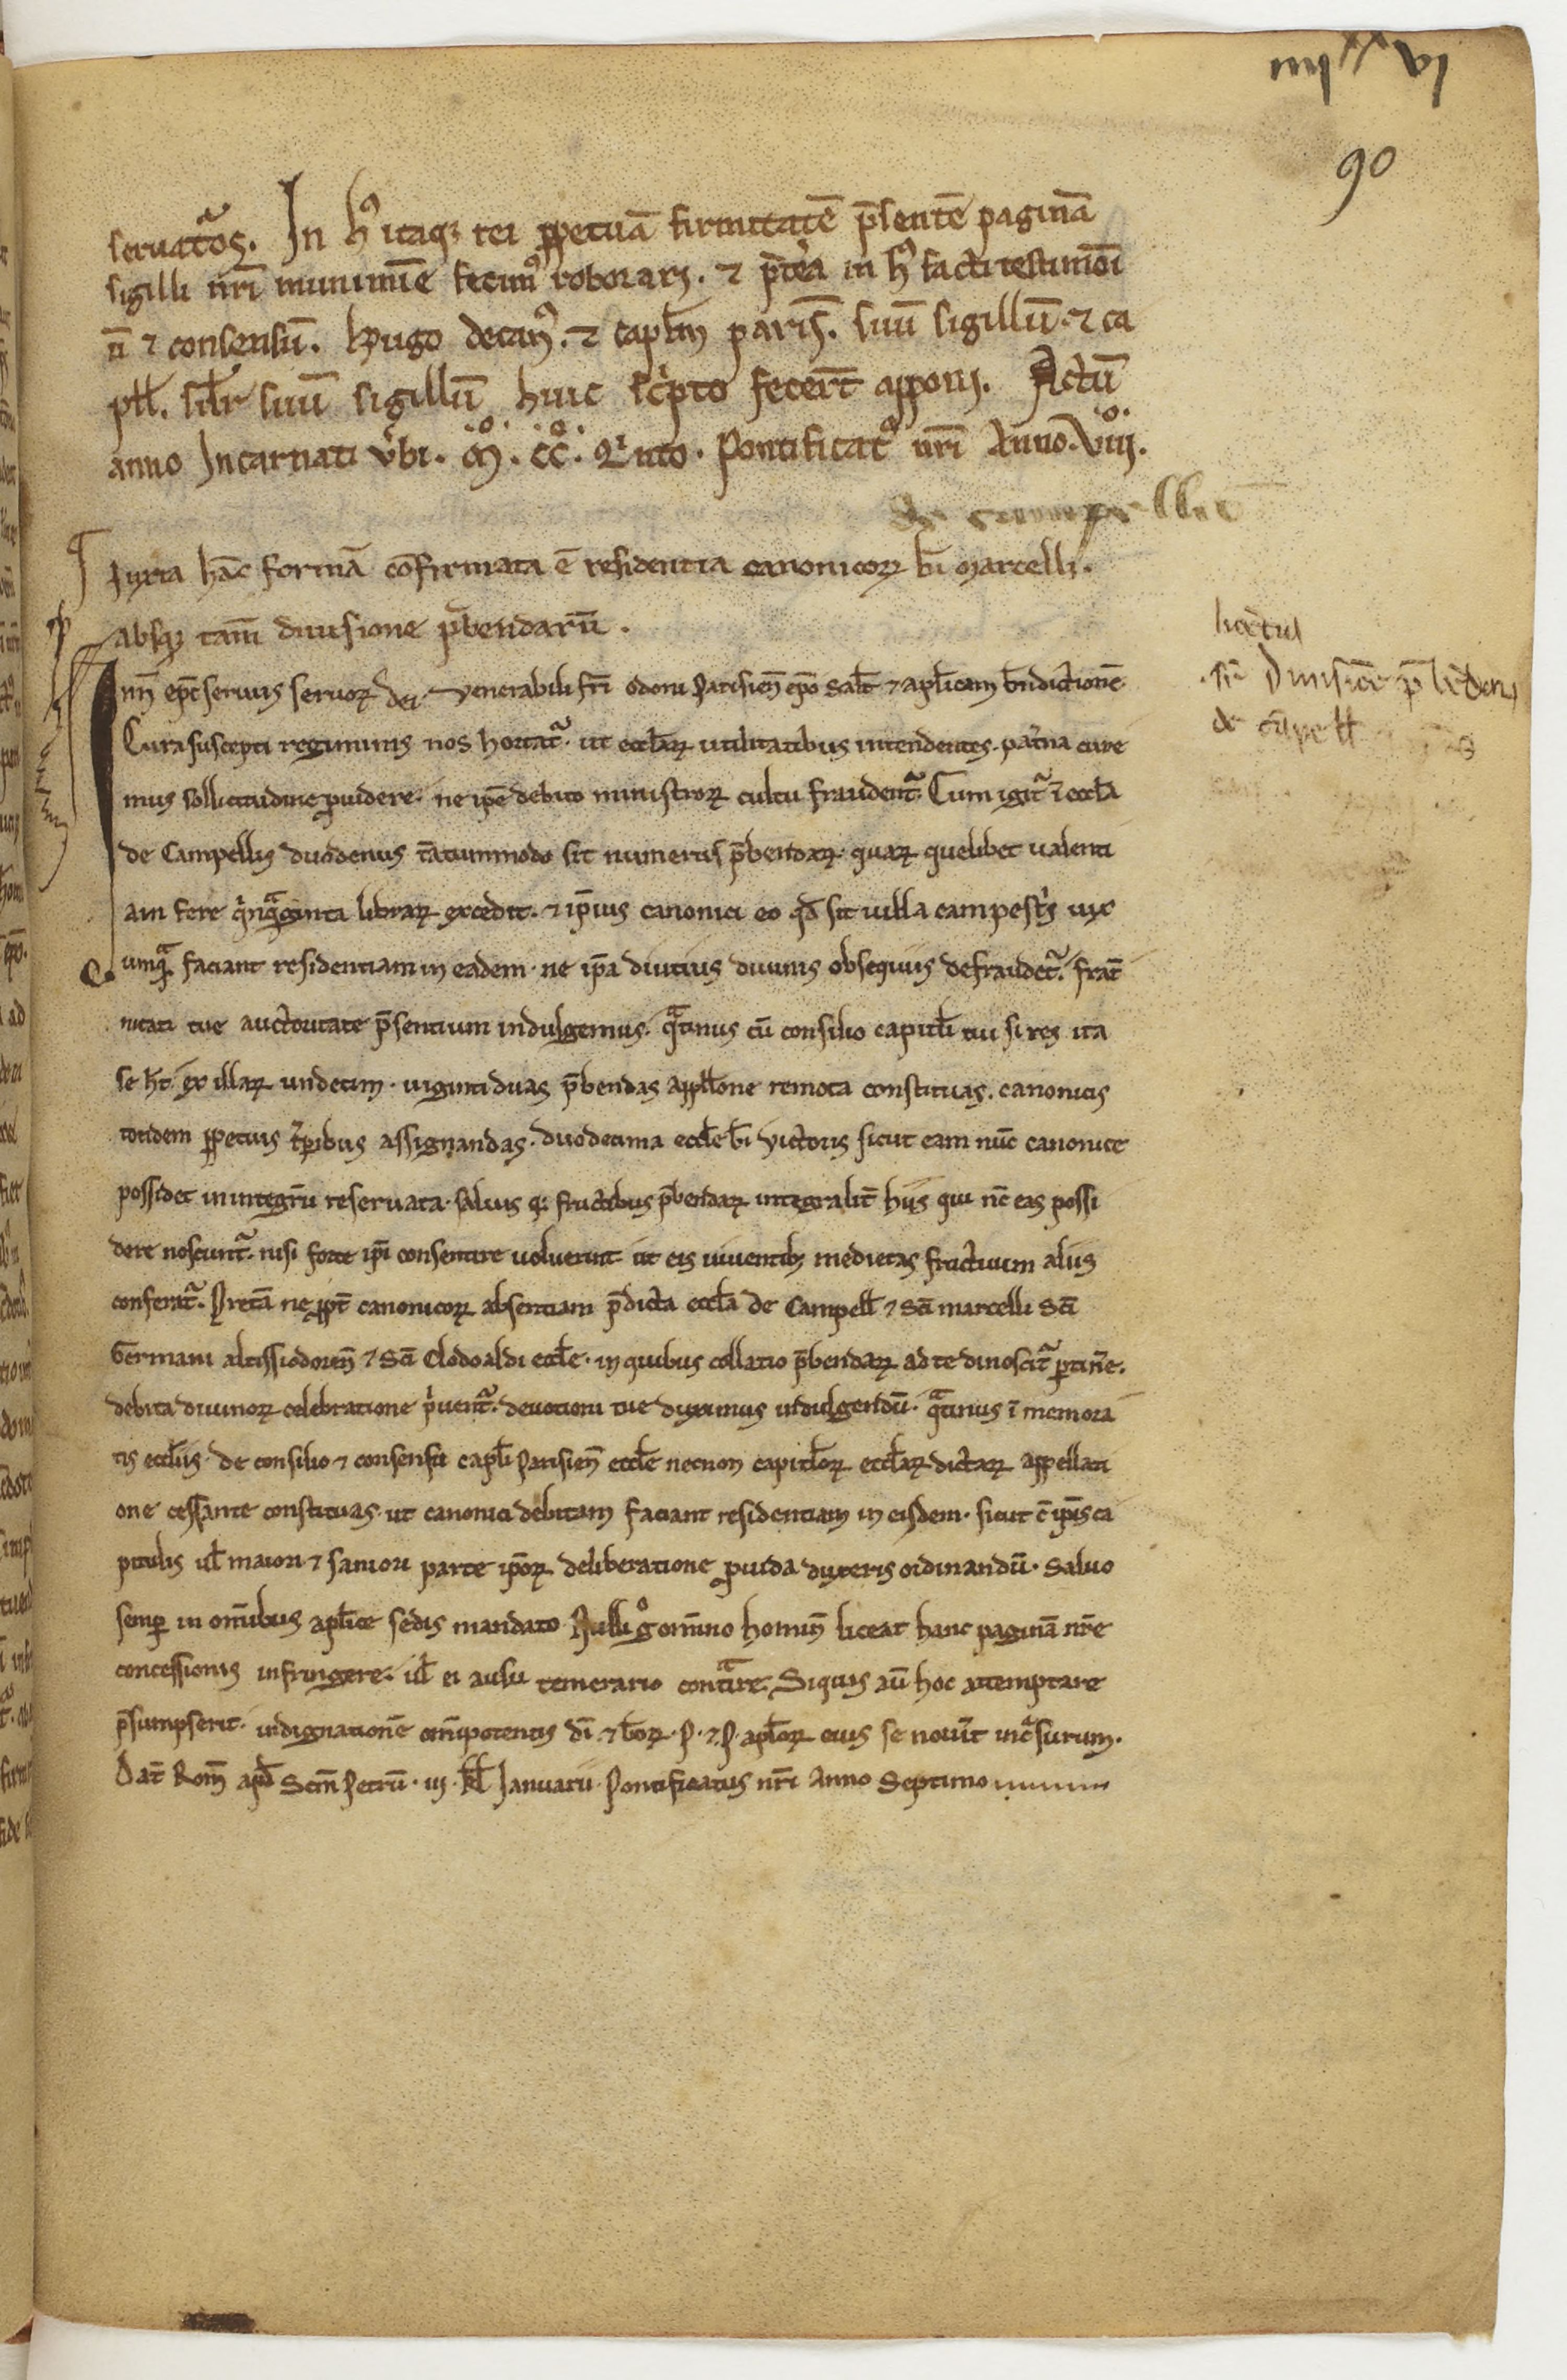 iiijxx vj
90
seruatos. In hꝰ itaqꝫ rei ꝑpetuā firmitatē p̄sentē paginā
sigilli nr̄i munimīe fecimꝰ roborari. ⁊ p̄terea in hꝰ facti testimōi
ū ⁊ consensū. Hugo decanꝰ. ⁊ capl̄m paris̄. suū sigillū. ⁊ ca
pll̄. sil̄r suū sigillū huic sc̓pto fecert̄ apponi. Actū
anno Incarnati v̓bi. Mͦ. CCͦ. Qi̓nto. Pontificatꝰ nr̄i Anno. Viijͦ.
Iuxta hāc formā cōfirmata ē residentia canonicoꝝ bī Marcelli.
absqꝫ tam̄ diuisione p̄bendarū.
Inn̄ ep̄c seruus seruoꝝ dei. Venerabili fr̄i Odoni Parisien̄ ep̄o Sal̄t ⁊ apl̄icam bn̄dictionē.
Cura suscepti regiminis nos hortat᷑. ut eccl̄aꝝ utilitatibus intendentes. pat̓na cure
mus sollicitudine ꝓuidere. ne ip̄e debito ministroꝝ cultu fraudent᷑. Cum igit᷑ ī eccl̄a
de Campellis duodenus tātummodo sit numerus p̄bendaꝝ. quaꝝ quelibet ualenti
am fere qi̓nqᵃginta libraꝝ excedit. ⁊ ip̄ius canonici eo qd̄ sit uilla campestris uix
umqᵃ faciant residentiam in eadem. ne ip̄a diutius diuinis obsequiis defraudet᷑. frat̄
nitati tue auctoritate p̄sentium indulgemus. qᵃtinus cū consilio capitl̄i tui si res ita
se ht̄. ex illaꝝ undecim. uiginti duas p̄bendas appll̄one remota constituas. canonicis
totidem ꝑpetuis tp̄ibus assignandas. duodecima eccl̄e bī Victoris sicut eam nūc canonice
possidet in integrū reseruata. saluis qꝫ fructibus p̄bendaꝝ integralit̄ hiis qui nc̄ eas possi
dere noscunt᷑. nisi forte ip̄i consentire uoluerint ut eis uiuentibꝫ medietas fructuum aliis
conferat᷑. Pret̄a ne ꝓpt̄ canonicoꝝ absentiam p̄dicta eccl̄a de Campell̄ ⁊ Sc̄i marcelli Sc̄i
Germani altissiodoren̄ ⁊ Sc̄i Clodoaldi eccl̄e. in quibus collatio p̄bendaꝝ ad te dinoscit᷑ ꝑtine᷑.
debita diuinoꝝ celebratione p̓uent᷑. deuotioni tue duximus indulgendū. qᵃtinus ī memora
tis eccl̄iis. de consilio ⁊ consensu capl̄i Parisien̄ eccl̄e necnon capitl̄oꝝ eccl̄aꝝ dictaꝝ appellati
one cessante constituas. ut canonici debitam faciant residentiam in eisdem. sicut c̄ ip̄is ca
pitulis ul̄ maiori ⁊ saniori parte ip̄oꝝ deliberatione ꝓuida duxeris ordinandū. Saluo
semꝑ in om̄ibus apl̄ice sedis mandato. Nulli gͦ om̄ino homin̄ liceat hanc paginā nr̄e
concessionis infringere. ul̄ ei ausu temerario contᵃire. Siquis aū hoc attemptare
p̄sumpserit. indignationē om̄ipotentis dī ⁊ b̄oꝝ. P. ⁊ P. apl̄oꝝ eius se nouīt incᵃsurum.
Dat̄ Rom̄ apd̄ Scm̄ Petrū. iij. kl̄ Januarii. Pontificatus nr̄i Anno Septimo
sn̄ Diuisiōe p̄bēdarꝫ
de cāpell̄